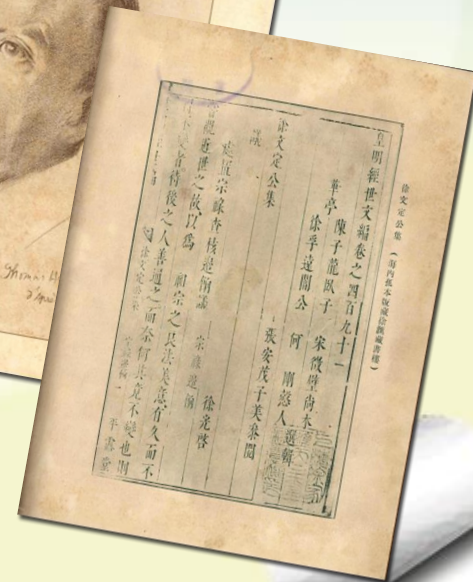 徐文定公集（海內孤本版藏徐匯藏書樓）
皇明經世文編卷之四百九十一
華亭 陳子龍臥子 宋徵璧尚木
徐孚遠闇公 何剛慤人 選輯
張安茂子美參閱
徐文定公集 徐光啓
議
處置宗祿查核邊餉議 宗祿邊餉
嘗觀近世之故以為 祖宗之良法美意有久而不
者待後之人善通之而奈何其竟不變也則
徐文定公集 宗祿邊餉 一 平露堂
Thomas